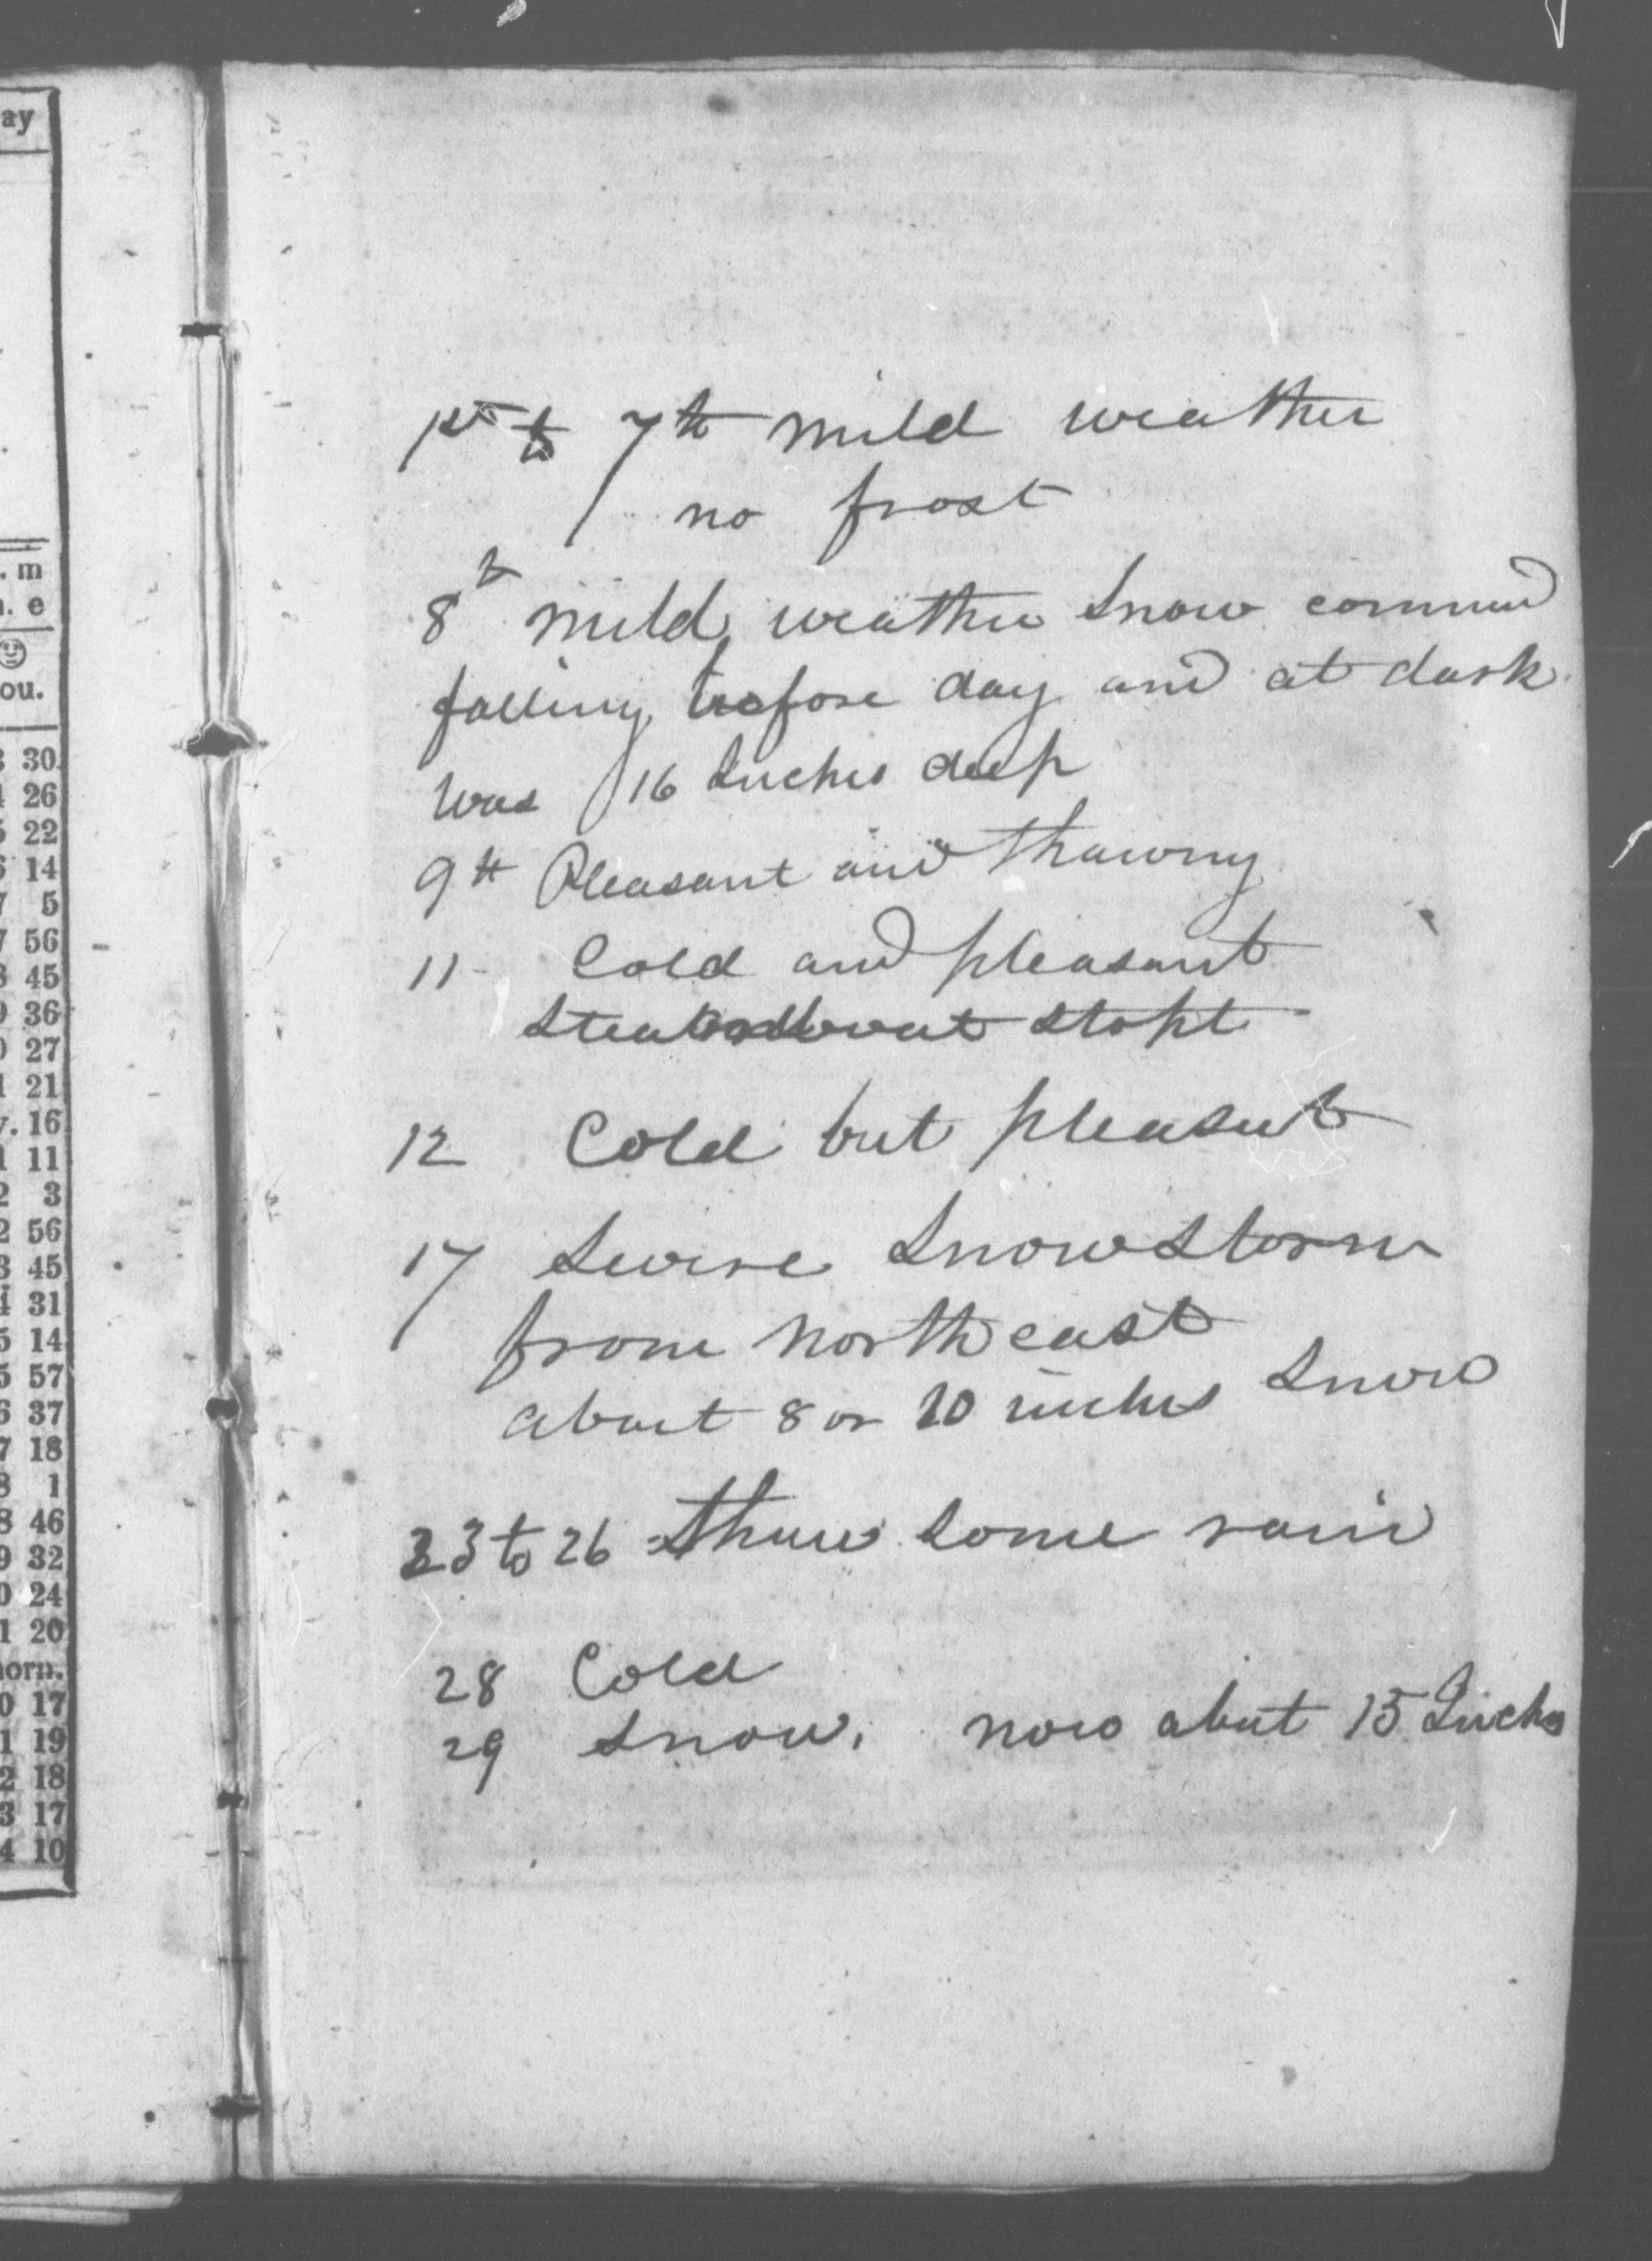 ay
. m
. e
ou.
30
26
22
14
7 5
7 56
8 45
9 36
0 27
1 21
v. 16
1 11
2 3
2 56
3 45
4 31
5 14
5 57
6 37
7 18
8 1
8 46
9 32
0 24
1 20
orn.
0 17
1 19
2 18
3 17
4 10
1st to 7th mild weather
no frost
8th mild weather Snow commend
falling before day and at dark
was 16 Inches deep
9th Pleasant and thawing
11 Cold and pleasant
Steamboat stopt
12 Cold but pleasent
17 Severe Snow Storm
from North east
about 8 or 10 inches Snow
23 to 26 thaw some rain
28 Cold
29 Snow. now about 15 Inches